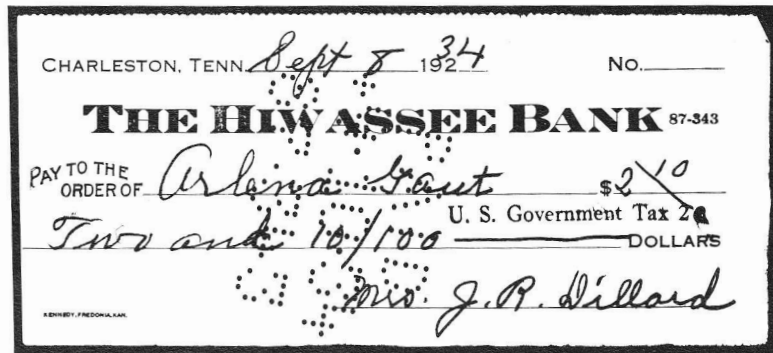 CHARLESTON, TENN. Sept 8 1934 No.
THE HIWASSEE BANK 87-343
PAY TO THE ORDER OF Arlena Gaut $2 10
U. S. Government Tax 2c
Two and 10/100 DOLLARS
Mrs. J. R. Dillard
KENNEDY, FREDONIA, KAN.